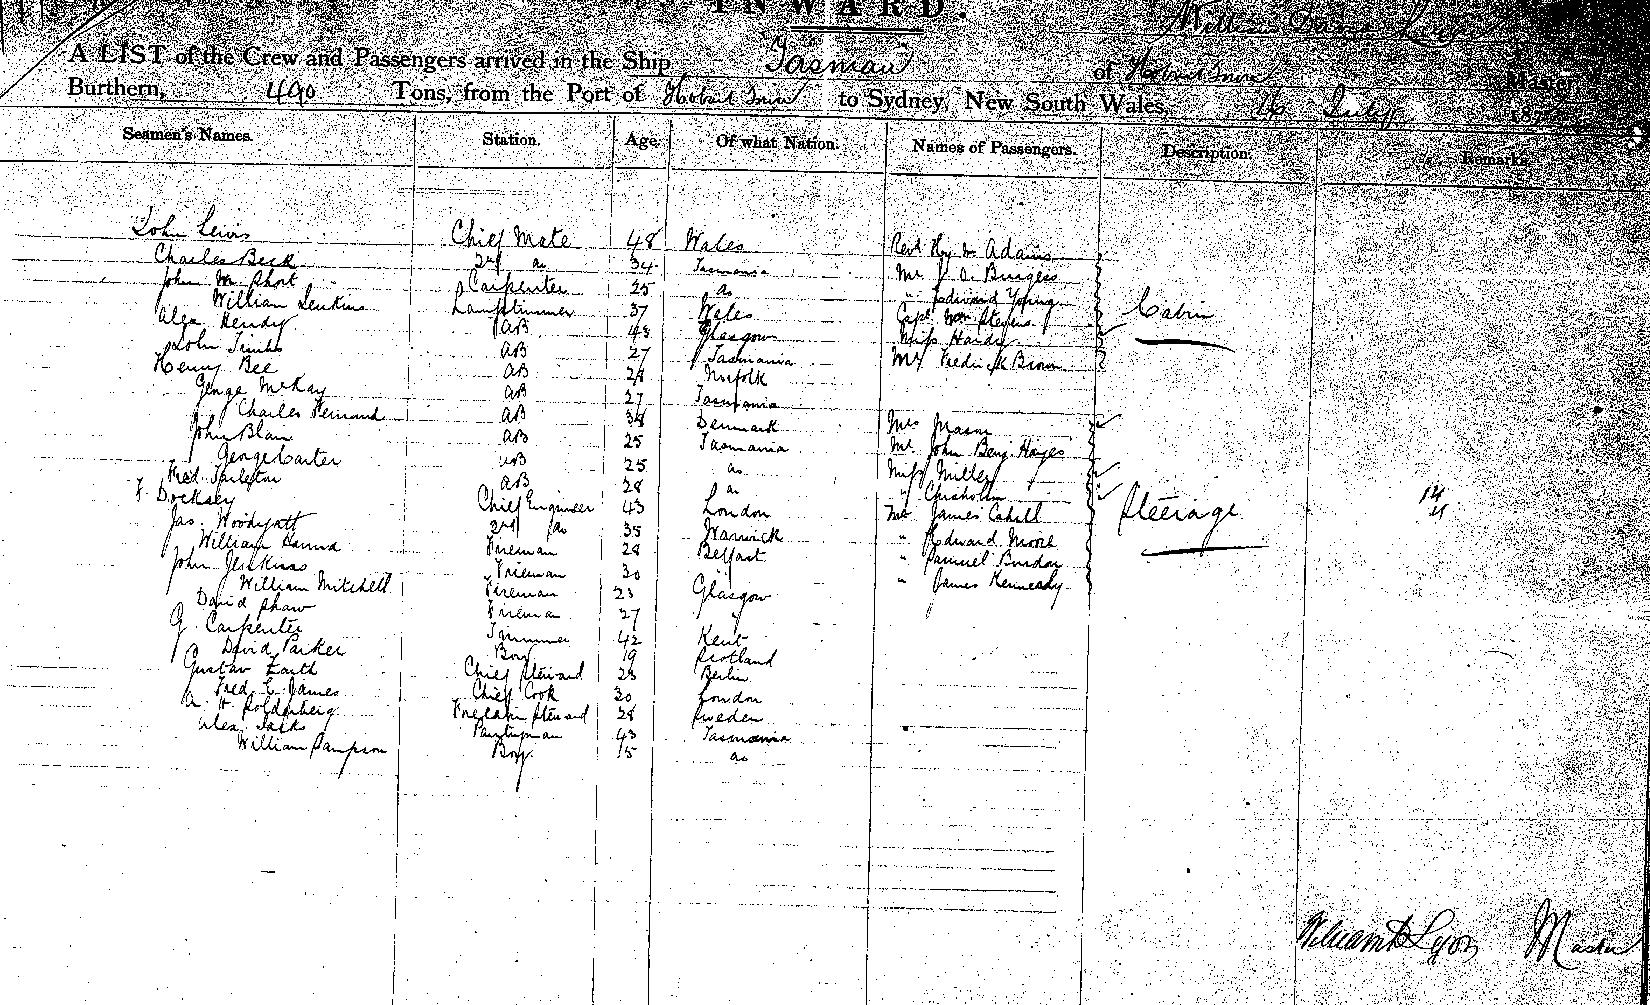 INWARD.
A LIST of the Crew and Passengers arrived in the Ship "Tasman" of Hobart Town Master,
Burthern, 490 Tons, from the Port of Hobart Town to Sydney, New South Wales, 187
Seamen's Names. Station. Age Of what Nation. Names of Passengers. Description. Remarks
John Lewis Chief Mate 48 Wales Revd Adams
Charles Beck 2nd do 34 Tasmania Mr J. O. Burgess
John Short Carpenter 25 do " Edward Young
William Jenkins Lamptrimmer 37 Wales Capt Wm Stevens Cabin
Alex Hendy AB 43 Glasgow Miss Hardy
John AB 27 Tasmania Mr Fredrick Brown
Henry Bee AB 28 Norfolk
George McKay AB 27 Tasmania
Charles AB 38 Denmark Mrs Mason
John Blair AB 25 Tasmania Mr John Benj. Hayes
George Carter AB 25 do Miss Miller
Fred Tarleton AB 28 do " Chisholm
F. Docksey Chief Engineer 43 London Mr James Cahill Steerage
Jas. Woodyatt 2nd do 35 Warwick " Edward Moore
William Hanna Fireman 28 Belfast " Samuel Burdon
John Jenkins Fireman 30 " James Kenneady
William Mitchell Fireman 23 Glasgow
David Shaw Fireman 27 "
G. Carpenter Trimmer 42 Kent
David Parker Boy 19 Scotland
Gustav Barth Chief Steward 28 Berlin
Fred. E. James Chief Cook 30 London
Forecabin Steward 28 Sweden
Alex. Jacks Pantryman 43 Tasmania
William Sampson Boy. 15 do
William D Lyon Master